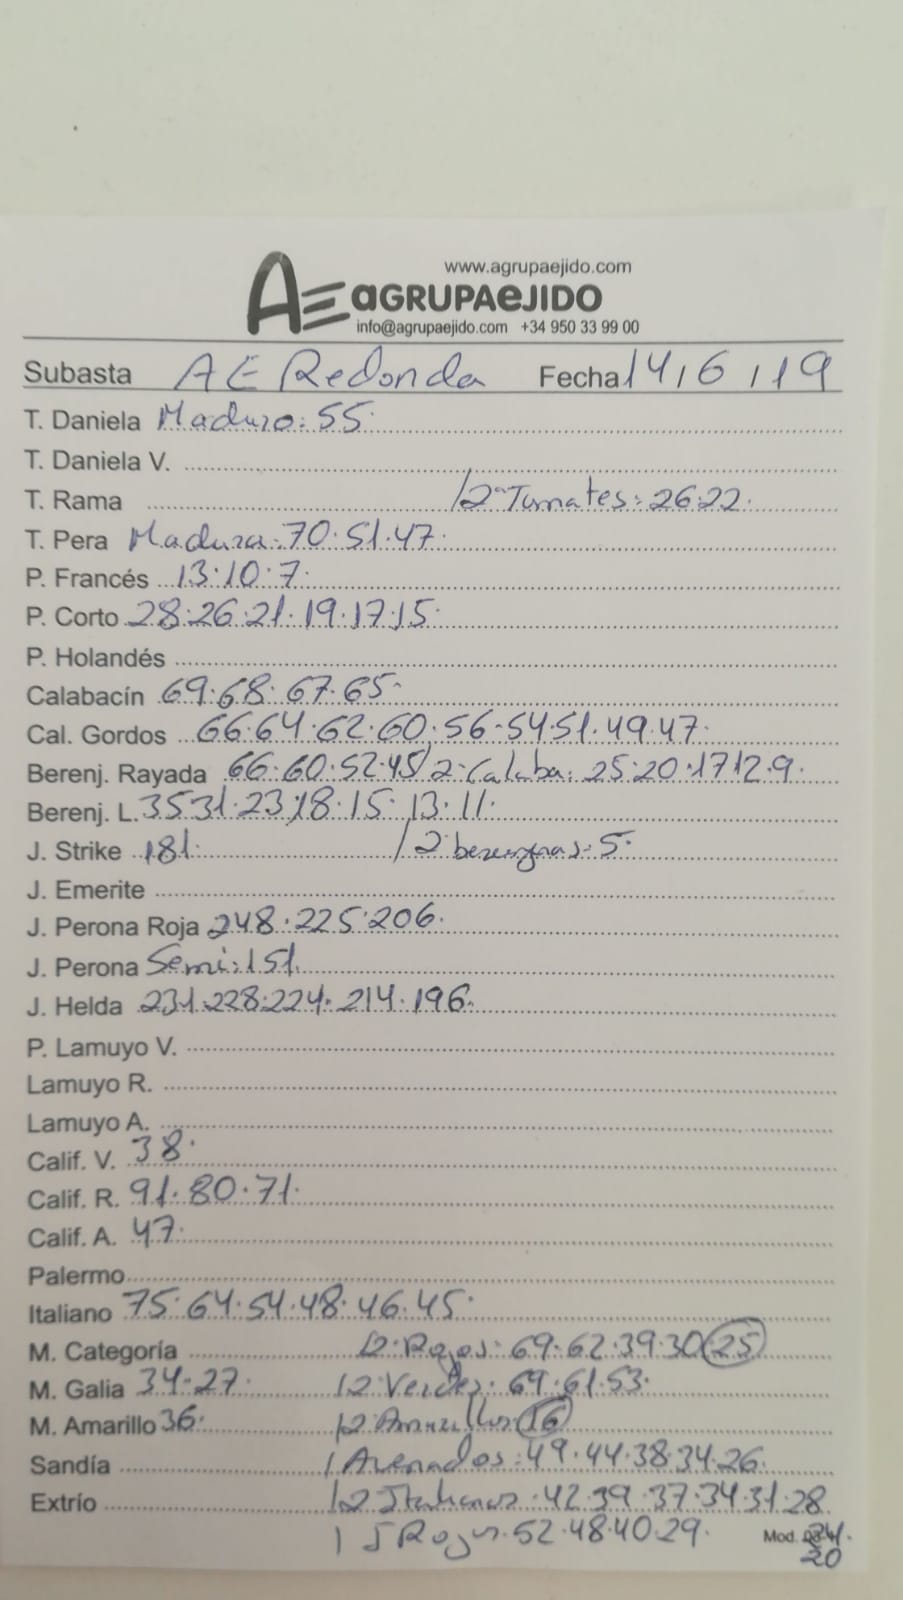 www.agrupaejido.com
AE AGRUPAEJIDO
info@agrupaejido.com +34 950 33 99 00
Subasta AE Redonda Fecha 14/6/19
T. Daniela Maduro: 55.
T. Daniela V.
T. Rama /2ª Tomates: 26.22.
T. Pera Madura: 70.51.47.
P. Francés 13.10.7.
P. Corto 28.26.21.19.17.15.
P. Holandés
Calabacín 69.68.67.65.
Cal. Gordos 66.64.62.60.56.54.51.49.47.
Berenj. Rayada 66.60.52.45/2ª Calaba: 25.20.17.12.9.
Berenj. L. 35.31.23.18.15.13.11.
J. Strike 181. /2 berengenas: 5.
J. Emerite
J. Perona Roja 248.225.206.
J. Perona Semi: 151.
J. Helda 231.228.224.214.196.
P. Lamuyo V.
Lamuyo R.
Lamuyo A.
Calif. V. 38.
Calif. R. 91.80.71.
Calif. A. 47.
Palermo
Italiano 75.64.54.48.46.45.
M. Categoría /2 Rojos: 69.62.39.30 25
M. Galia 34.27. /2 Verdes: 69.61.53.
M. Amarillo 36. /2 Amarillos: 16
Sandía / Asenados: 49.44.38.34.26.
Extrío /2 Italianos: 42.39.37.34.31.28
/ J Rojos: 52.48.40.29. Mod. 24.
20